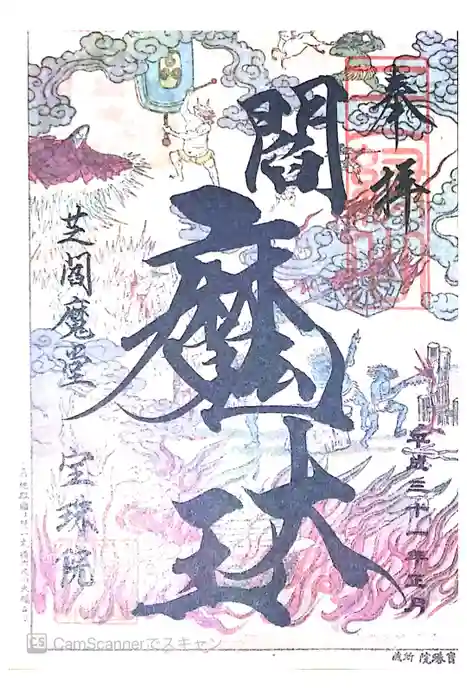 奉拝
閻魔大王
平成三十一年正月
芝閻魔堂 宝珠院
CamScannerでスキャン
寳珠院